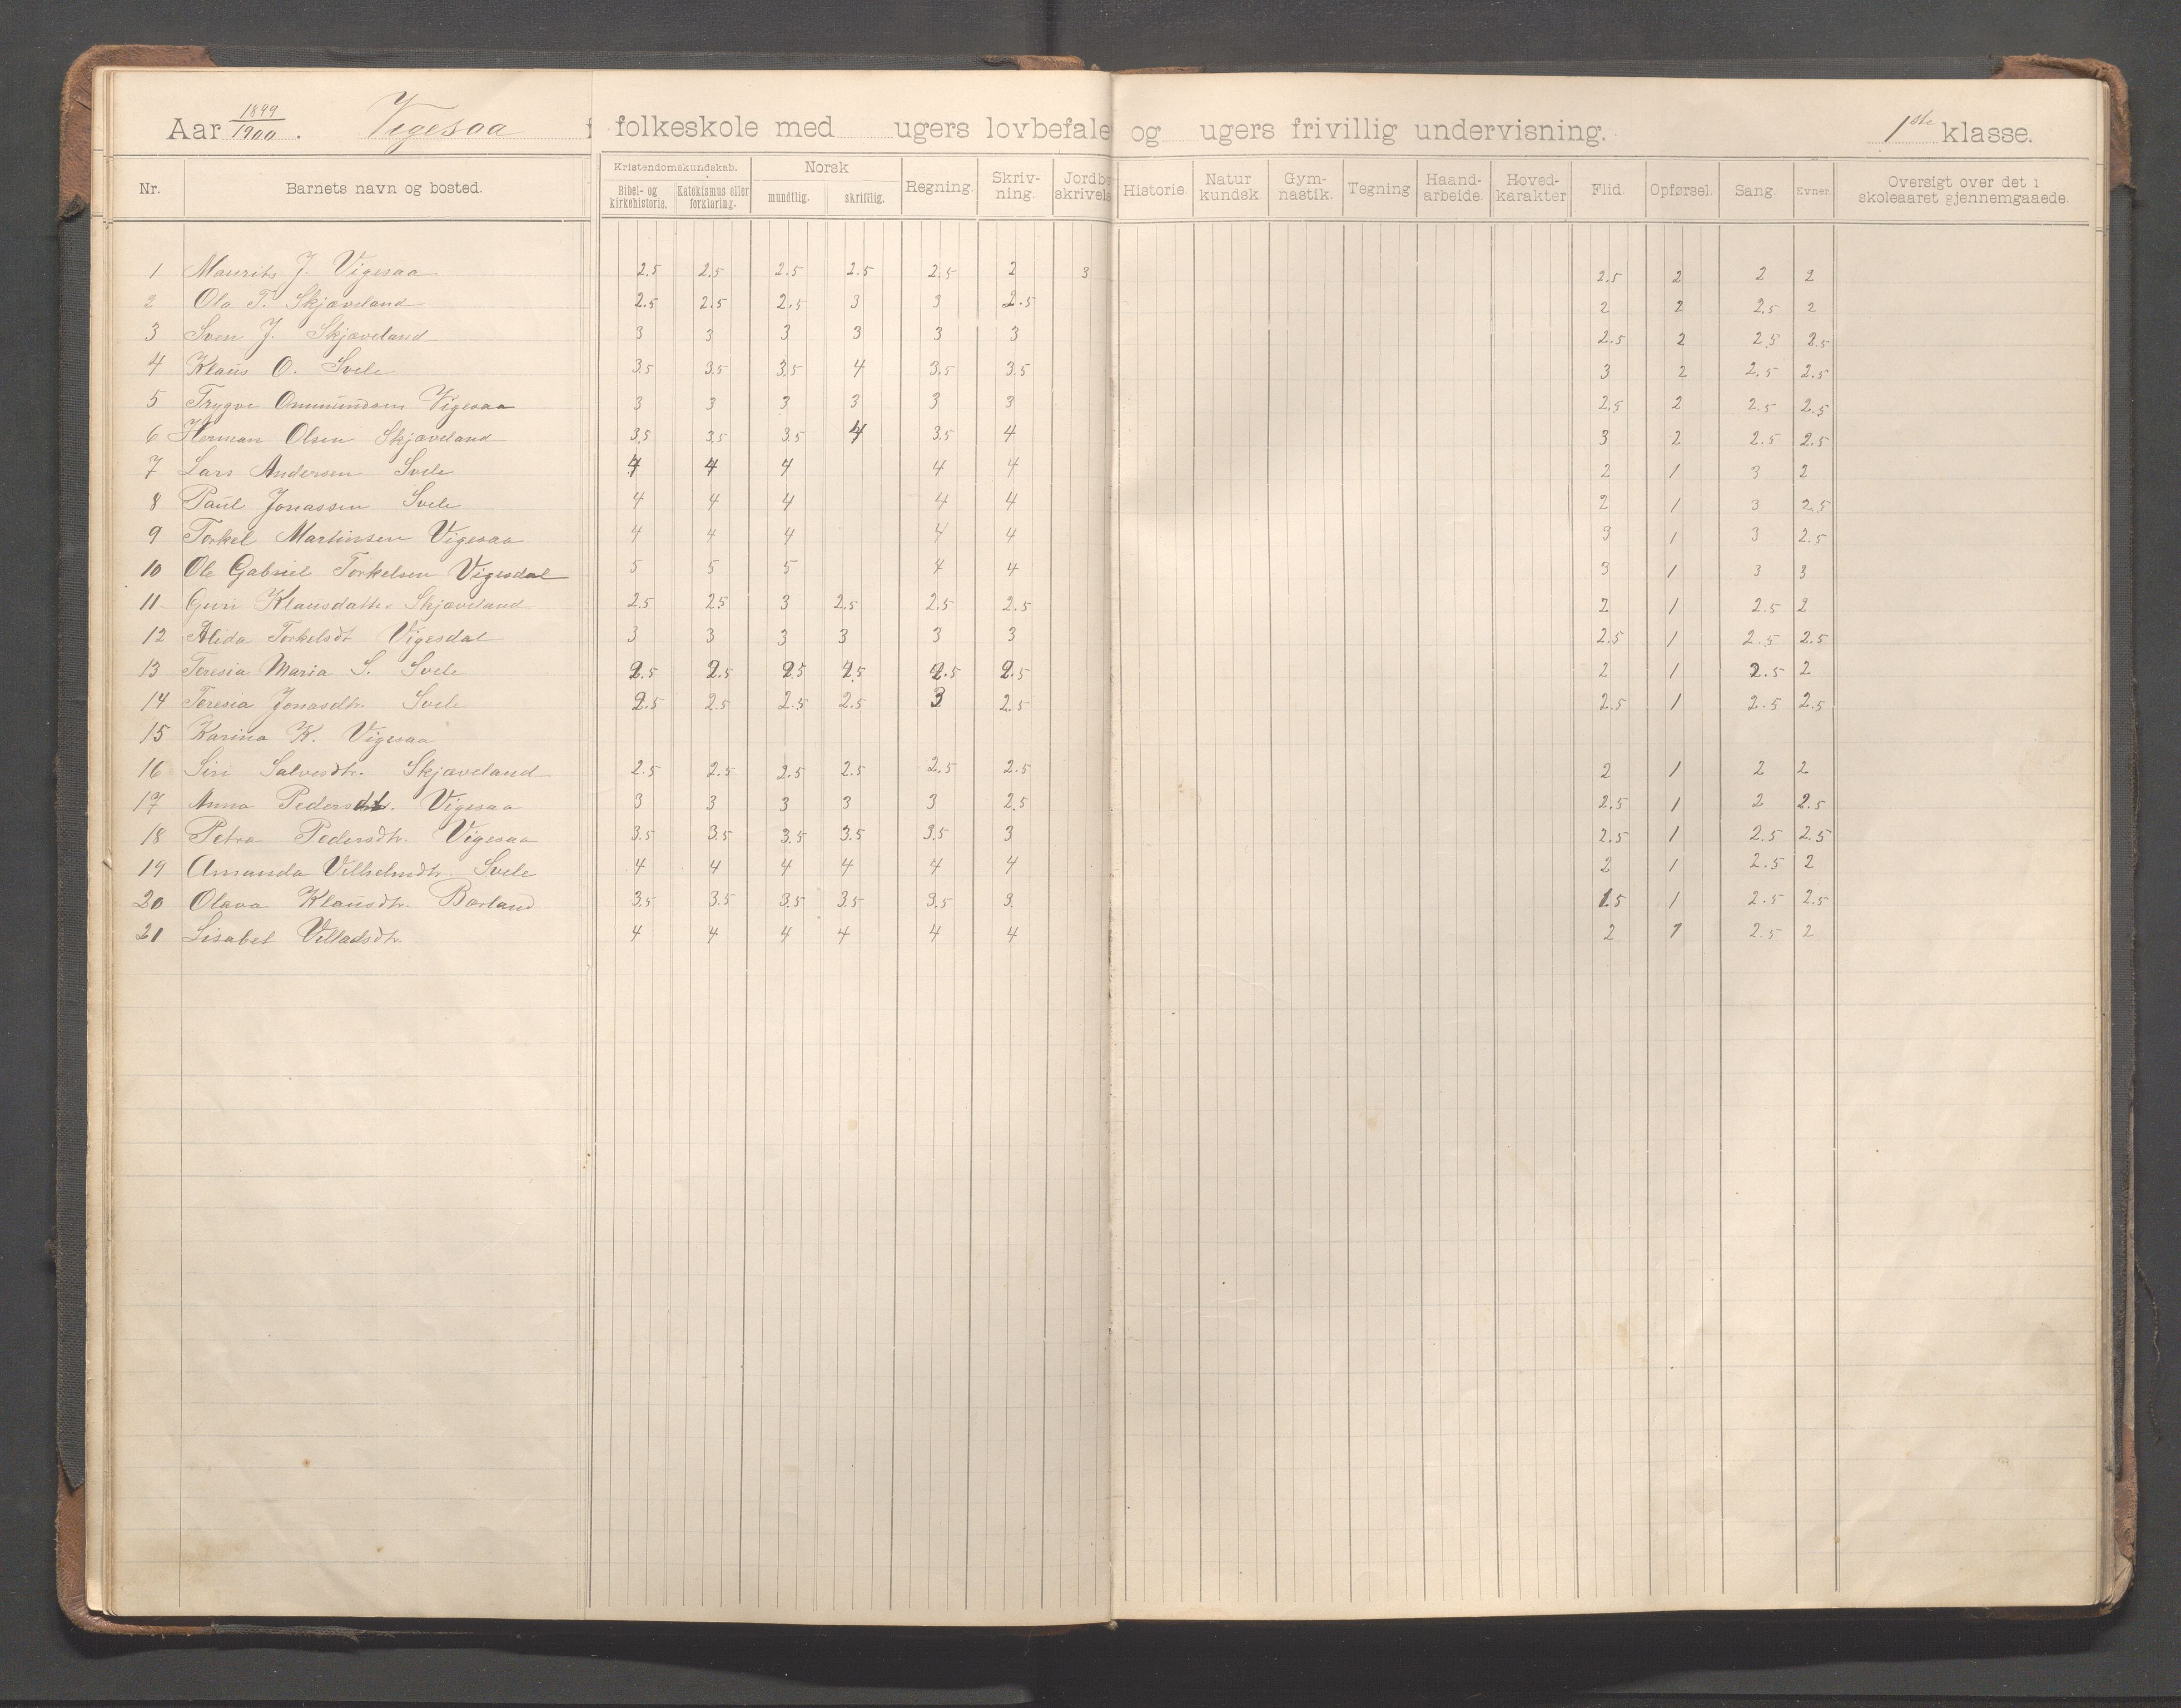 Aar 1899/1900. Vigesaa folkeskole med ugers lovbefale og ugers frivillig undervisning. 1ste klasse.
Nr. Barnets navn og bosted. Kristendomskundskab. Bibel- og kirkehistorie. Katekismus eller forklaring. Norsk mundtlig. skriftlig. Regning. Skriv-ning. Jordbe skrivels Historie. Natur kundsk. Gym-nastik. Tegning Haand-arbeide. Hoved-karakter Flid. Opførsel. Sang. Evner. Oversigt over det i skoleaaret gjennemgaaede.
1 Maurits J. Vigesaa 2.5 2.5 2.5 2.5 2.5 2 3 2.5 2 2 2
2 Ola T. Skjæveland 2.5 2.5 2.5 3 3 2.5 2 2 2.5 2
3 Sven J. Skjæveland 3 3 3 3 3 3 2.5 2 2.5 2.5
4 Klaus O. Svele 3.5 3.5 3.5 4 3.5 3.5 3 2 2.5 2.5
5 Trygve Ommundsen Vigesaa 3 3 3 3 3 3 2.5 2 2.5 2.5
6 Herman Olsen Skjæveland 3.5 3.5 3.5 4 3.5 4 3 2 2.5 2.5
7 Lars Andersen Svele 4 4 4 4 4 2 1 3 2
8 Paul Jonassen Svele 4 4 4 4 4 2 1 3 2.5
9 Torkel Martinsen Vigesaa 4 4 4 4 4 3 1 3 2.5
10 Ole Gabriel Torkelsen Vigesdal 5 5 5 4 4 3 1 3 3
11 Guri Klausdatter Skjæveland 2.5 2.5 3 2.5 2.5 2.5 2 1 2.5 2
12 Alida Torkelsdt Vigesdal 3 3 3 3 3 3 2.5 1 2.5 2.5
13 Teresia Maria S. Svele 2.5 2.5 2.5 2.5 2.5 2.5 2 1 2.5 2
14 Teresia Jonasdtr. Svele 2.5 2.5 2.5 2.5 3 2.5 2.5 1 2.5 2.5
15 Karina K. Vigesaa
16 Siri Salvesdtr. Skjæveland 2.5 2.5 2.5 2.5 2.5 2.5 2 1 2 2
17 Anna Pedersdtr. Vigesaa 3 3 3 3 3 2.5 2.5 1 2 2.5
18 Petra Pedersdtr. Vigesaa 3.5 3.5 3.5 3.5 3.5 3 2.5 1 2.5 2.5
19 Amanda Vilhelmdtr. Svele 4 4 4 4 4 4 2 1 2.5 2
20 Olava Klausdtr. Børland 3.5 3.5 3.5 3.5 3.5 3 1.5 1 2.5 2.5
21 Lisabet Villadsdtr. 4 4 4 4 4 4 2 1 2.5 2